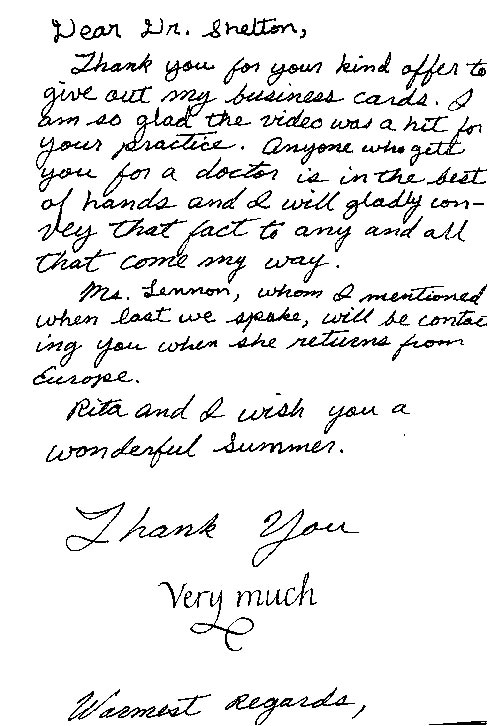 Dear Dr. Shelton,
Thank you for your kind offer to
give out my business cards. I
am so glad the video was a hit for
your practice. Anyone who gets
you for a doctor is in the best
of hands and I will gladly con-
vey that fact to any and all
that come my way.
Ms. Lennon, whom I mentioned
when last we spoke, will be contac
ing you when she returns from
Europe.
Rita and I wish you a
wonderful Summer.
Thank You
Very much
Warmest Regards,